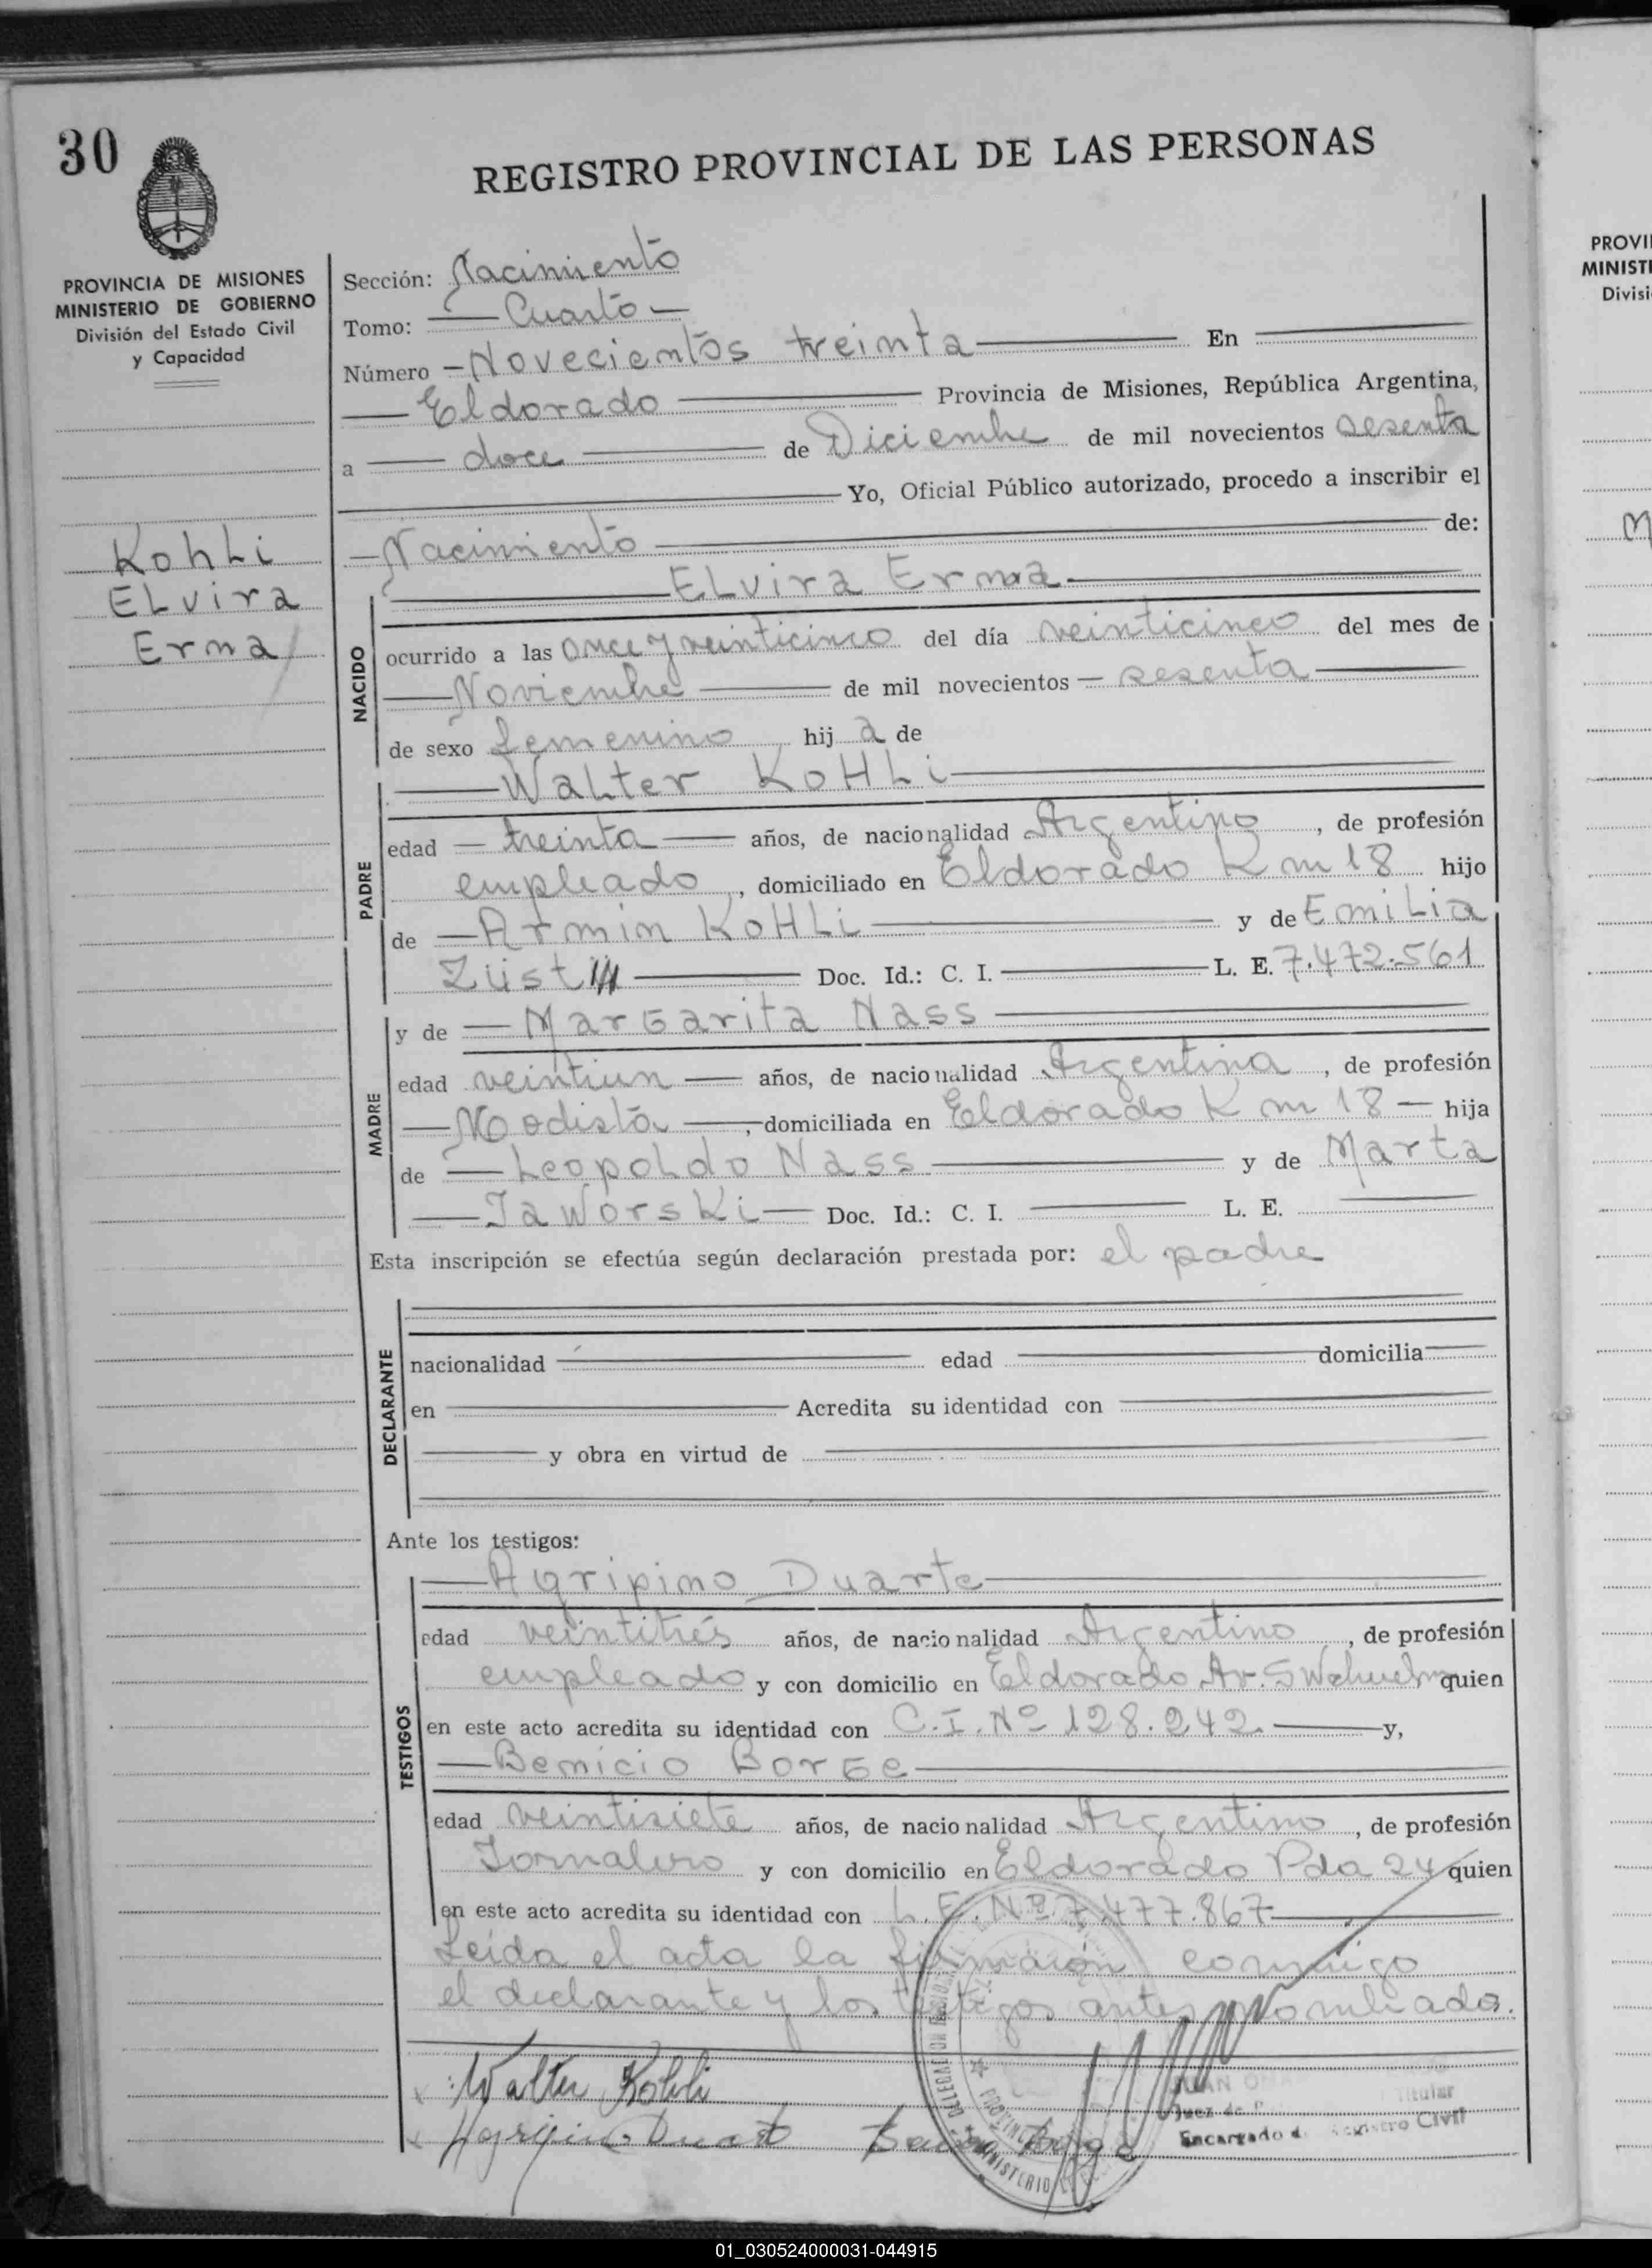 30
REGISTRO PROVINCIAL DE LAS PERSONAS
PROVINCIA DE MISIONES
MINISTERIO DE GOBIERNO
División del Estado Civil
y Capacidad
Kohli
Elvira
Erma
Sección: Nacimiento
Tomo: Cuarto
Número Novecientos treinta En
Eldorado Provincia de Misiones, República Argentina,
a doce de Diciembre de mil novecientos sesenta
Yo, Oficial Público autorizado, procedo a inscribir el
Nacimiento de:
NACIDO
Elvira Erma
ocurrido a las once y veinticinco del día veinticinco del mes de
Noviembre de mil novecientos sesenta
de sexo femenino hij a de
PADRE
Walter KoHLi
edad treinta años, de nacionalidad Argentino, de profesión
empleado, domiciliado en Eldorado Km 18 hijo
de Armin KoHLi y de Emilia
Züst Doc. Id.: C. I. L. E. 7.472.561
MADRE
y de Margarita Nass
edad veintiun años, de nacionalidad Argentina, de profesión
Modista, domiciliada en Eldorado Km 18 hija
de Leopoldo Nass y de Marta
Jaworski Doc. Id.: C. I. L. E.
Esta inscripción se efectúa según declaración prestada por: el padre
DECLARANTE
nacionalidad edad domicilia
en Acredita su identidad con
y obra en virtud de
Ante los testigos:
TESTIGOS
Agripino Duarte
edad veintitrés años, de nacionalidad Argentino, de profesión
empleado y con domicilio en Eldorado Av. quien
en este acto acredita su identidad con C.I. Nº 128.242. y,
Benicio Borge
edad veintisiete años, de nacionalidad Argentino, de profesión
Jornalero y con domicilio en Eldorado Pda 24 quien
en este acto acredita su identidad con L.E. Nº 7.477.867
Leída el acta la firmaron conmigo
el declarante y los testigos antes nombrados.
Walter Kohli
Titular
Juez de P
Encargado d Registro Civil
PROVI
MINIST
Divisi
M
01_030524000031-044915